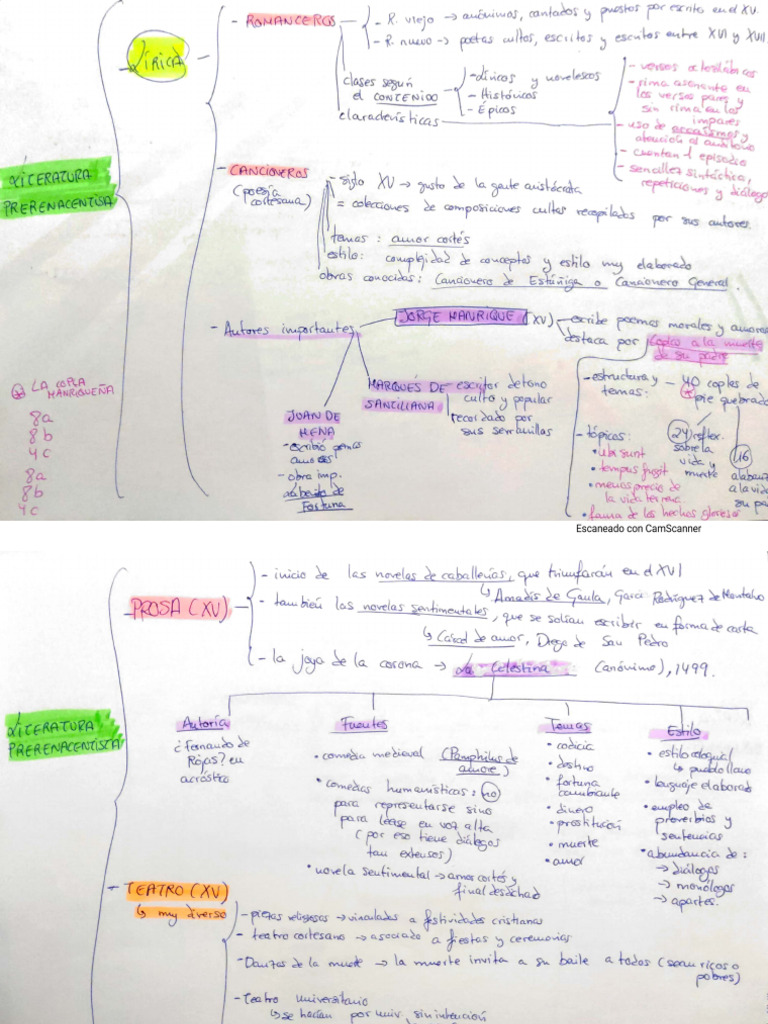 LITERATURA
PRERENACENTISA
LÍRICA
- ROMANCEROS
- R. viejo → anónimos, cantados y puestos por escrito en el XV.
- R. nuevo → poetas cultos, escritos y escritos entre XVI y XVII.
clases según
el CONTENIDO
- líricos y novelescos
- Históricos
- Épicos
características
- versos octosílabicos
- rima asonante en
los versos pares y
sin rima en los
impares
- uso de arcaísmos y
atención al auditorio
- cuentan 1 episodio
- sencillez sintáctica,
repeticiones y diálogo
- CANCIONEROS
(poesía
cortesana)
- siglo XV → gusto de la gente aristócrata
= colecciones de composiciones cultas recopilados por sus autores.
temas: amor cortés
estilo: complejidad de conceptos y estilo muy elaborado
obras conocidas: Cancionero de Estúñiga o Cancionero General.
- Autores importantes
JORGE MANRIQUE (XV)
escribe poemas morales y amoros
destaca por Coplas a la muerte
de su padre
- estructura y
temas:
- 40 coplas de
pie quebrado
24 reflex.
sobre la
vida y
muerte
16
alaban
a la vida
su pa
- tópicos:
• ubi sunt
• tempus fugit
• menosprecio de
la vida terrena
• fama de los hechos gloriosos
MARQUÉS DE
SANTILLANA
escritor de tono
culto y popular
recordado por
sus serranillas
JUAN DE
MENA
- escribió poemas
amorosos
- obra imp.
Laberinto de
Fortuna
* LA COPLA
MANRIQUEÑA
8a
8b
4c
8a
8b
4c
Escaneado con CamScanner
LITERATURA
PRERENACENTISTA
- PROSA (XV)
- inicio de las novelas de caballerías, que triunfarán en el XVI
↳ Amadís de Gaula, Garci Rodríguez de Montalvo
- también las novelas sentimentales, que se solían escribir en forma de carta
↳ Cárcel de amor, Diego de San Pedro
- la joya de la corona → La Celestina (anónimo), 1499.
Autoría
¿Fernando de
Rojas? en
acróstico
Fuentes
• comedia medieval (Pamphilus de
amore)
• comedias humanísticas: no
para representarse sino
para leerse en voz alta
(por eso tiene diálogos
tan extensos)
• novela sentimental → amor cortés y
final desdichado
Temas
• codicia
• destino
• fortuna
cambiante
• dinero
• prostitución
• muerte
• amor
Estilo
• estilo coloquial
↳ pueblo llano
• lenguaje elaborado
• empleo de
proverbios y
sentencias
• abundancia de:
→ diálogos
→ monólogos
→ apartes.
- TEATRO (XV)
↳ muy diverso
- piezas religiosas → vinculados a festividades cristianas
- teatro cortesano → asociado a fiestas y ceremonias
- Danzas de la muerte → la muerte invita a su baile a todos (sean ricos o
pobres)
- Teatro universitario
↳ se hacían por univ. sin intención